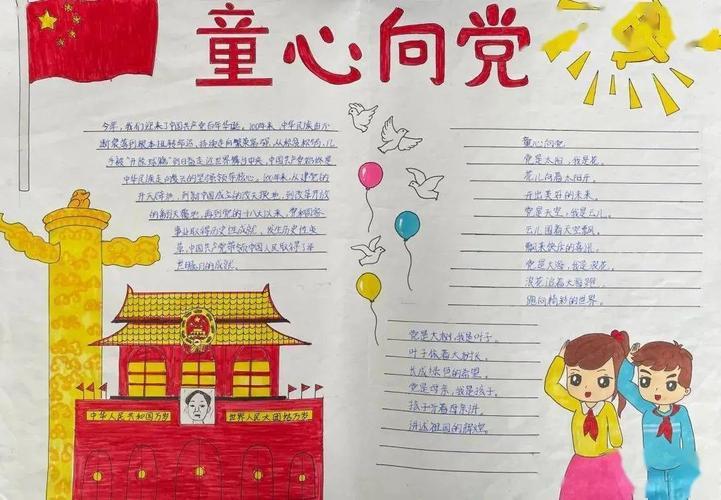 童心向党
今年,我们迎来了中国共产党百年华诞。100年来,中华民族由不
断衰落到根本扭转命运,持续走向繁荣富强,从积贫积弱、几
乎被"开除球籍"到日益走近世界舞台中央,中国共产党始终是
中华民族走向复兴的坚强领导核心。100年来,从建党的
开天辟地,到新中国成立的改天换地,到改革开放
的翻天覆地,再到党的十八大以来,党和国家
事业取得历史性成就、发生历史性变
革,中国共产党带领中国人民取得了举
世瞩目的成就。
童心向党
党是太阳,我是花。
花儿向着太阳开,
开出美好的未来。
党是天空,我是云儿。
云儿围着天空飘,
飘来快乐的喜讯。
党是大海,我是浪花。
浪花追着大海跑,
跑向精彩的世界。
党是大树,我是叶子。
叶子依着大树长,
长成绿色的希望。
党是母亲,我是孩子。
孩子听着母亲讲,
讲述祖国的辉煌。
中华人民共和国万岁
世界人民大团结万岁